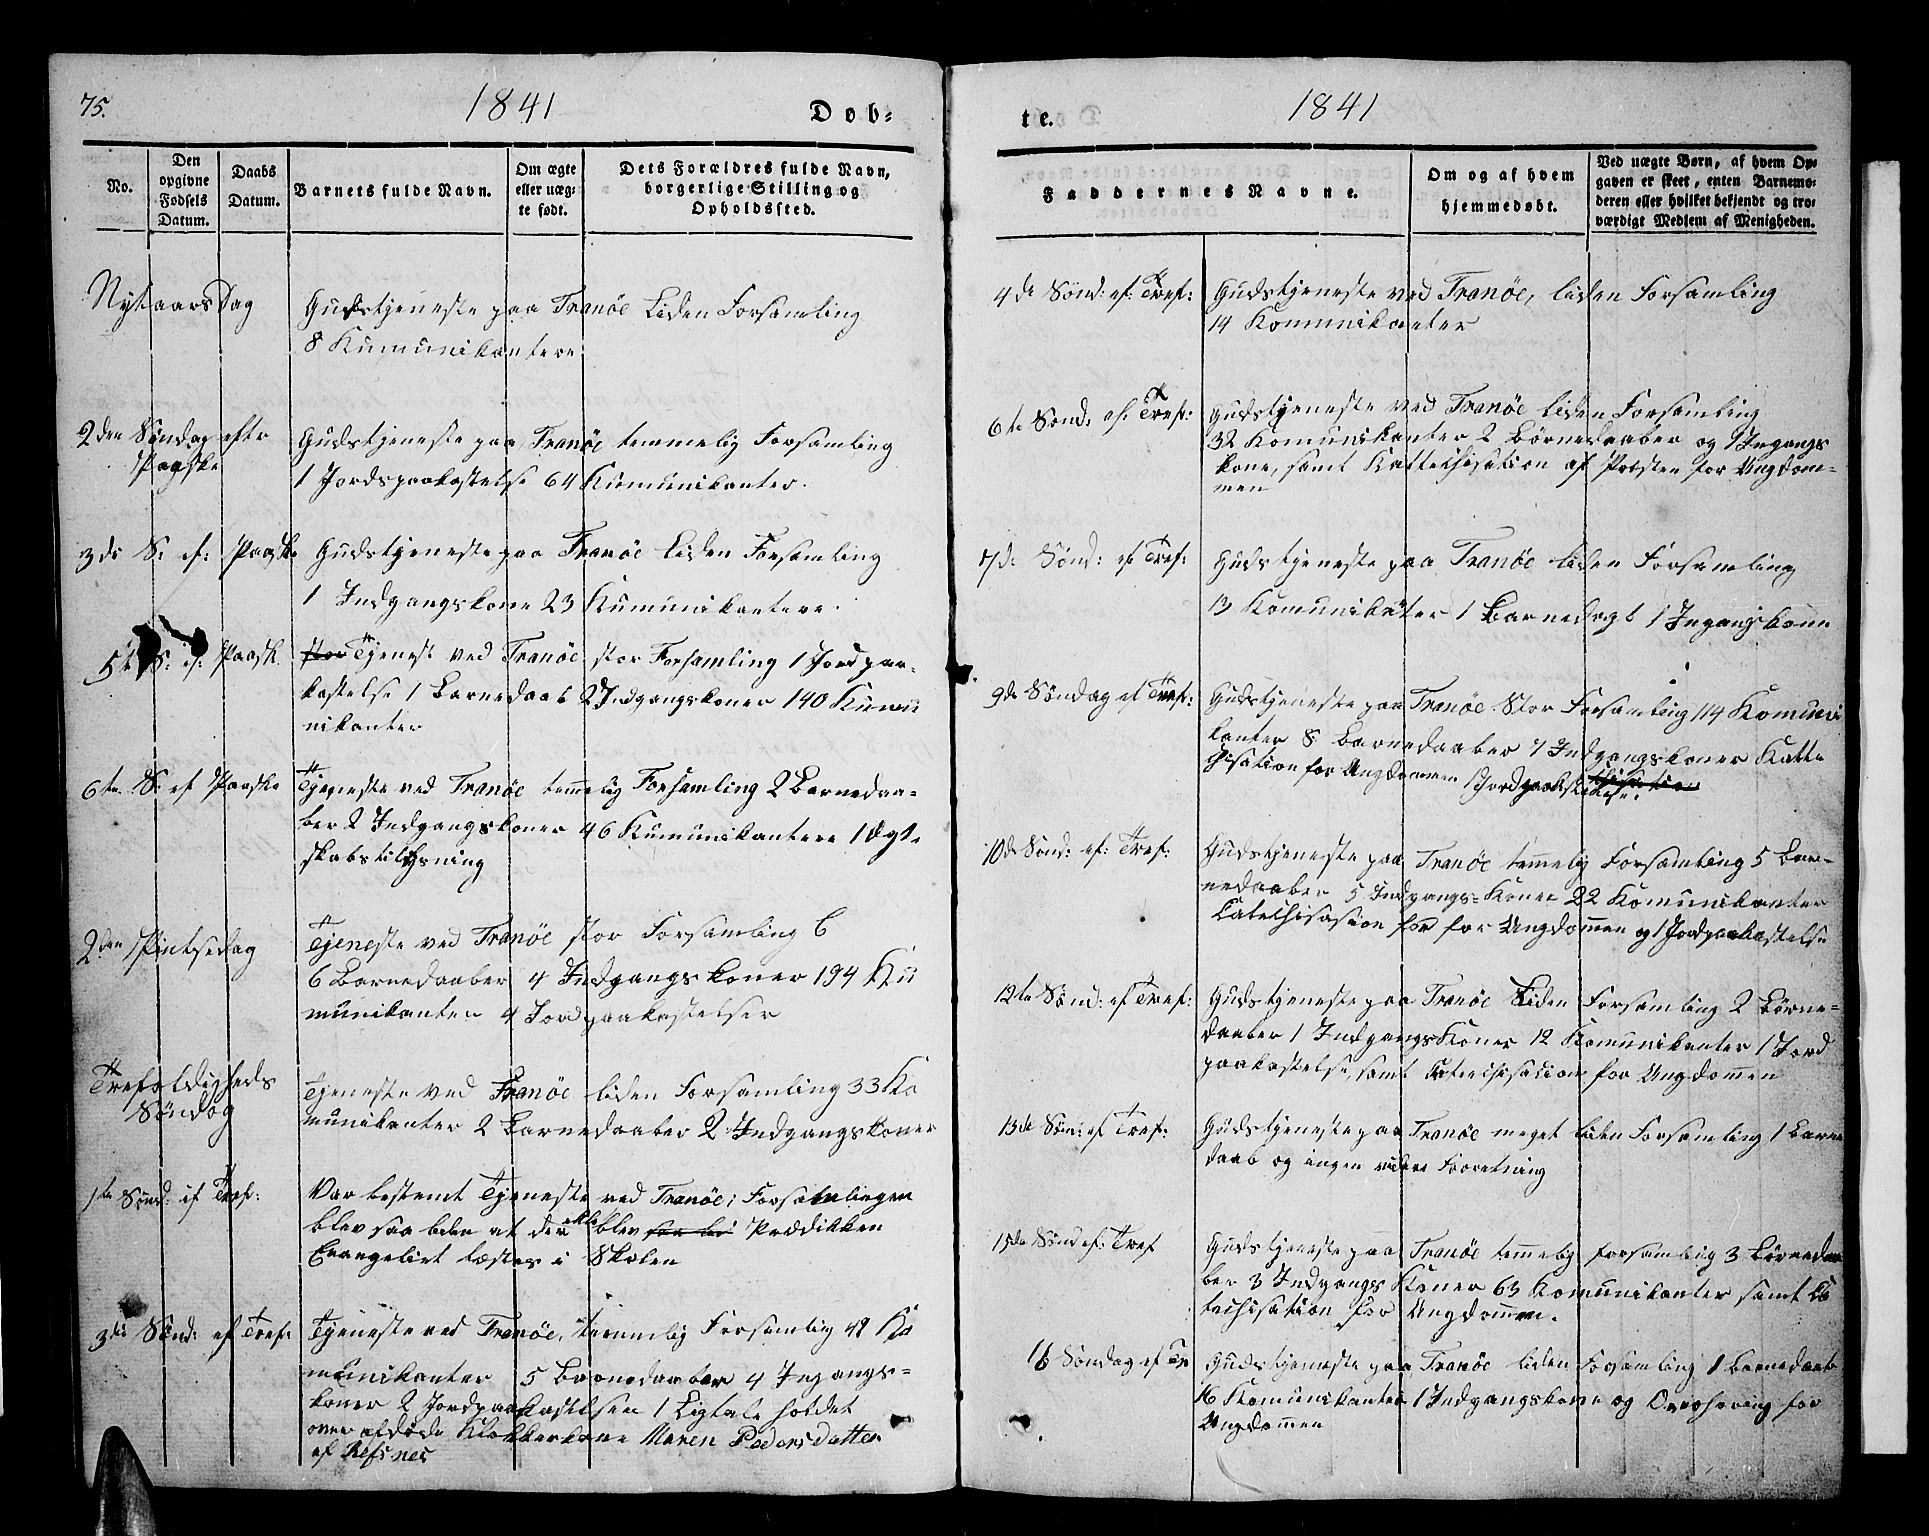 75.
1841
Dob-
No.
Den
opgivne
Fødsels
Datum.
Daabs
Datum.
Barnets fulde Navn.
Om ægte
eller uæg-
te født.
Dets Forældres fulde Navn,
borgerlige Stilling og
Opholdssted.
Nytaarsdag
Gudstjeneste paa Tranöe Liden Forsamling
8 Kumunikantere
2den Söndag efter
Paaske
Gudstjeneste paa Tranöe temmelig Forsamling
1 Jordspaakastelse 64 Kumunikanter.
3de S: ef: Paaske
Gudstjeneste paa Tranöe Liden Forsamling
1 Indgangskone 23 Kumunikantere.
5te S: ef: Paask.
stor Tjenest ved Tranöe stor Forsamling 1 Jordpaa-
kastelse 1 Barnedaab 2 Indgangskoner 140 Kumu
nikanter
6te S: ef Paaske
Tjeneste ved Tranöe temelig Forsamling 2 Barnedaa-
ber 2 Indgangskoner 46 Kumunikantere 1 Ægte
skabstillysning
2den Pintsedag
Tjeneste ved Tranöe stor Forsamling 6
6 Barnedaaber 4 Indgangskoner 194 Ku
munikanter 4 Jordpaakastelser
Trefoldigheds
Söndag
Tjeneste ved Tranöe liden Forsamling 33 Ko
munikanter 2 Barnedaaber 2 Indgangskoner
1te Sönd: ef Tref:
Var bestemt Tjeneste ved Tranöe; Forsamlingen
blev saa liden at der ikke blev Prædikken
Evangeliet læstes i Skolen
3de Sönd: ef Tref:
Tjeneste ved Tranöe, temmelig Forsamling 49 Ko
munikanter 5 Barnedaaber 4 Ingangs-
koner 2 Jordpaakastelsen 1 Ligtale holdet
over afdöde Klokkerkone Maren Pedersdatter
af Refsnes
te.
1841
Faddernes Navne.
Om og af hvem
hjemmedøbt.
Ved uægte Børn, af hvem Op-
gaven er skeet, enten Barnemo-
deren eller hvilket bekjendt og tro-
værdigt Medlem af Menigheden.
4de Sönd: ef: Tref:
Gudstjeneste ved Tranöe, liden Forsamling
14 Kommunikanter
6te Sönd: ef. Tref:
Gudstjeneste ved Tranöe liden Forsamling
32 Komunikanter 2 Börnedaaber og 1 Ingangs
kone, samt Kattechisation af Præsten for Ungdom-
men
7de Sönd: ef Tref:
Gudstjeneste paa Tranöe liden Forsamling
13 Komunikater 1 Barnedaab 1 Ingangskone
9de Söndag ef Tref:
Gudstjeneste paa Tranöe Stor Forsamling 114 Komuni
kanter 8 Barnedaaber 7 Indgangskoner Katte
chisation for Ungdommen 1 Jordpaakastelse.
10de Sönd: ef: Tref:
Gudstjeneste paa Tranöe temelig Forsamling 5 Bar-
nedaaber 5 Indgangs-Koner 22 Komunikanter
Catechisasion for for Ungdomen og 1 Jordpaakastelse
12te Sönd: ef Tref:
Gudstjeneste paa Tranöe Liden Forsamling 2 Börne-
daaber 1 Indgangs Koner 12 Komunikanter 1 Jord
paakastelse, samt Catechisation for Ungdomen
13de Sön: ef Tref:
Gudstjeneste paa Tranöe meget liden Forsamling 1 Barne
daab og ingen videre Forretning
15de Sönd ef: Tref
Gudstjeneste paa Tranöe temelig forsamling 3 Börnedaa
ber 3 Indgangs Koner 63 Komunikanter samt Ca
techisation for Ungdommen.
16 Söndag ef Tr
Gudstjeneste paa Tranöe liden Forsamling 1 Barnedaab
16 Komunikanter 1 Indgangskone og Overhöring for
Ungdomen